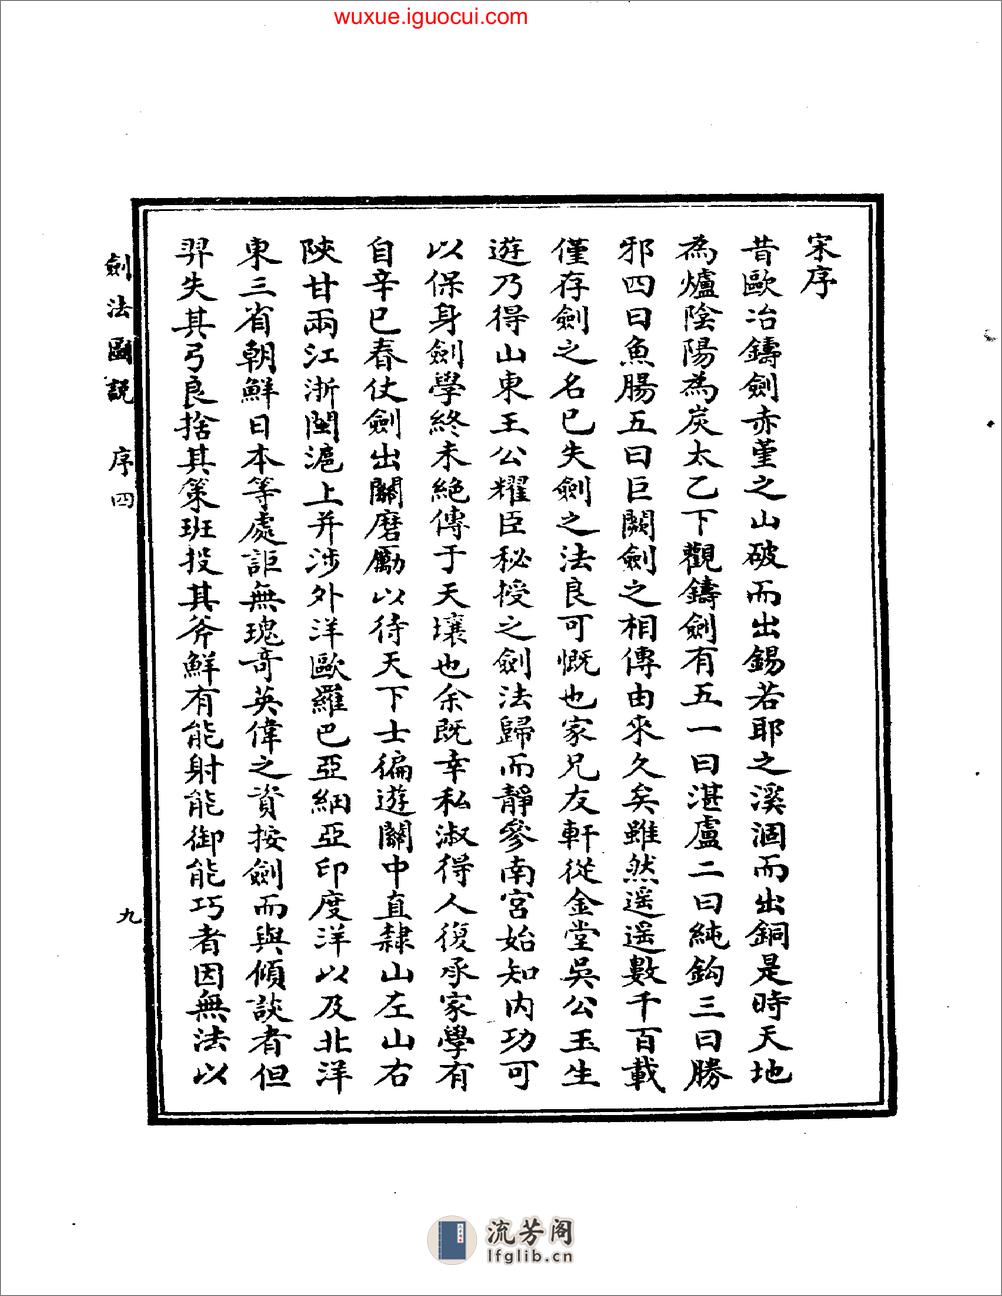 wuxue.iguocui.com
宋序
昔歐冶鑄劍赤堇之山破而出錫若耶之溪涸而出銅是時天地
為爐陰陽為炭太乙下觀鑄劍有五一曰湛盧二曰純鈎三曰勝
邪四曰魚腸五曰巨闕劍之相傳由來久矣雖然遥遥數千百載
僅存劍之名已失劍之法良可慨也家兄友軒從金堂吳公玉生
遊乃得山東王公耀臣秘授之劍法歸而靜參南宮始知内功可
以保身劍學終未絕傳于天壤也余既幸私淑得人復承家學有
自辛巳春仗劍出關磨勵以待天下士徧遊關中直隸山左山右
陝甘兩江浙閩滬上并涉外洋歐羅巴亞細亞印度洋以及北洋
東三省朝鮮日本等處詎無瑰奇英偉之資按劍而與傾談者但
羿失其弓良捨其策班投其斧鮮有能射能御能巧者因無法以
劍法圖說 序四
九
流芳阁
lfglib.cn